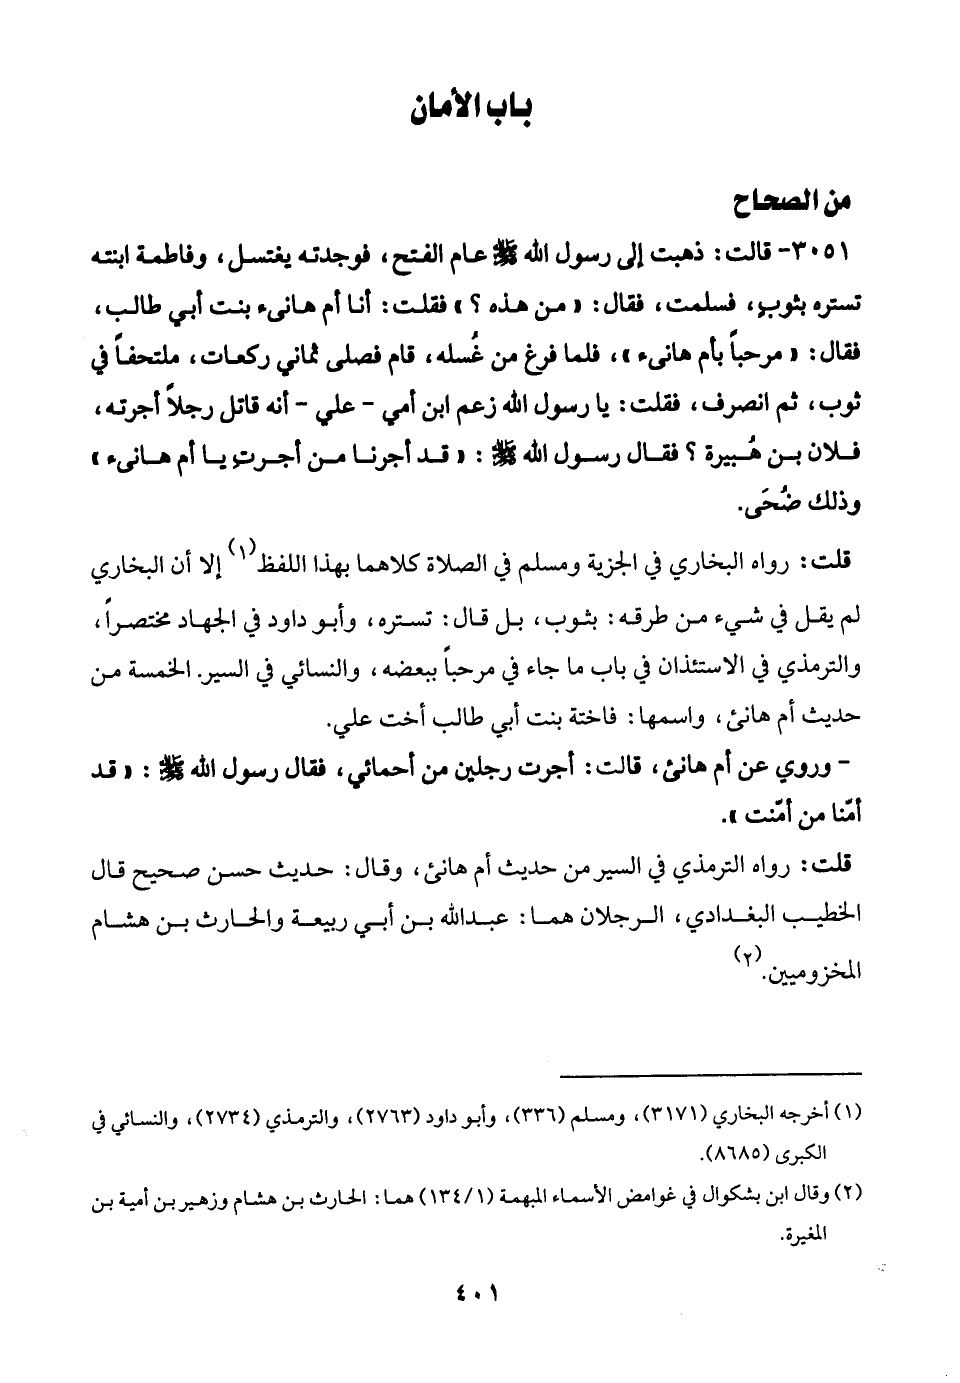 باب الأمان
من الصحاح
٣٠٥١- قالت: ذهبت إلى رسول الله ﷺ عام الفتح، فوجدته يغتسل، وفاطمة ابنته
تستره بثوبٍ، فسلمت، فقال: « من هذه ؟ » فقلت: أنا أم هانىء بنت أبي طالب،
فقال: « مرحباً بأم هانىء »، فلما فرغ من غُسله، قام فصلى ثماني ركعات، ملتحفاً في
ثوب، ثم انصرف، فقلت: يا رسول الله زعم ابن أمي - علي - أنه قاتل رجلاً أجرته،
فلان بن هُبيرة ؟ فقال رسول الله ﷺ : « قد أجرنا من أجرتِ يا أم هانىء »
وذلك ضُحَى.
قلت: رواه البخاري في الجزية ومسلم في الصلاة كلاهما بهذا اللفظ(١) إلا أن البخاري
لم يقل في شيء من طرقه: بثوب، بل قال: تستره، وأبو داود في الجهاد مختصراً،
والترمذي في الاستئذان في باب ما جاء في مرحباً ببعضه، والنسائي في السير. الخمسة من
حديث أم هانئ، واسمها: فاختة بنت أبي طالب أخت علي.
- وروي عن أم هانئ، قالت: أجرت رجلين من أحمائي، فقال رسول الله ﷺ : « قد
أمّنا من أمّنت ».
قلت: رواه الترمذي في السير من حديث أم هانئ، وقال: حديث حسن صحيح قال
الخطيب البغدادي، الرجلان هما: عبدالله بن أبي ربيعة والحارث بن هشام
المخزوميين.(٢)
(١) أخرجه البخاري (٣١٧١)، ومسلم (٣٣٦)، وأبو داود (٢٧٦٣)، والترمذي (٢٧٣٤)، والنسائي في
الكبرى (٨٦٨٥).
(٢) وقال ابن بشكوال في غوامض الأسماء المبهمة (١/ ١٣٤) هما: الحارث بن هشام وزهير بن أمية بن
المغيرة.
٤٠١